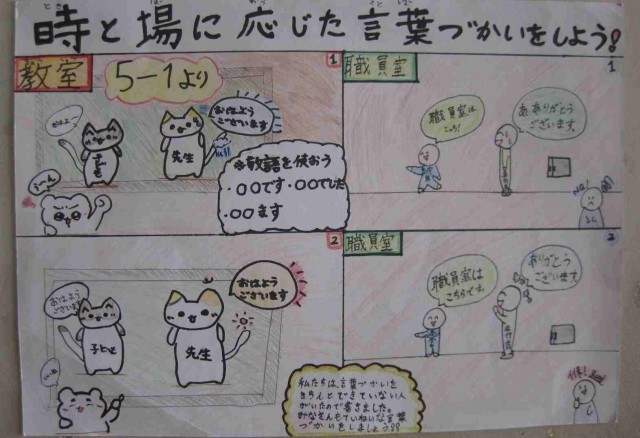 時と場に応じた言葉づかいをしよう!
とき
ば
おう
ことば
教室
5-1より
1
おはよう
ございます
子ども
先生
※敬語を使おう
・○○です・○○でした
・○○ます
職員室
1
職員室は
こっち!
あ、ありがとう
ございます。
No!
2
おはよう
ございます
おはよう
ございます
子ども
先生
職員室
2
職員室は
こちらです。
ありがとう
ございます。
私たちは、言葉づかいを
きちんとできていない人
がいたので書きました。
みなさんもていねいな言葉
づかいをしましょう!!